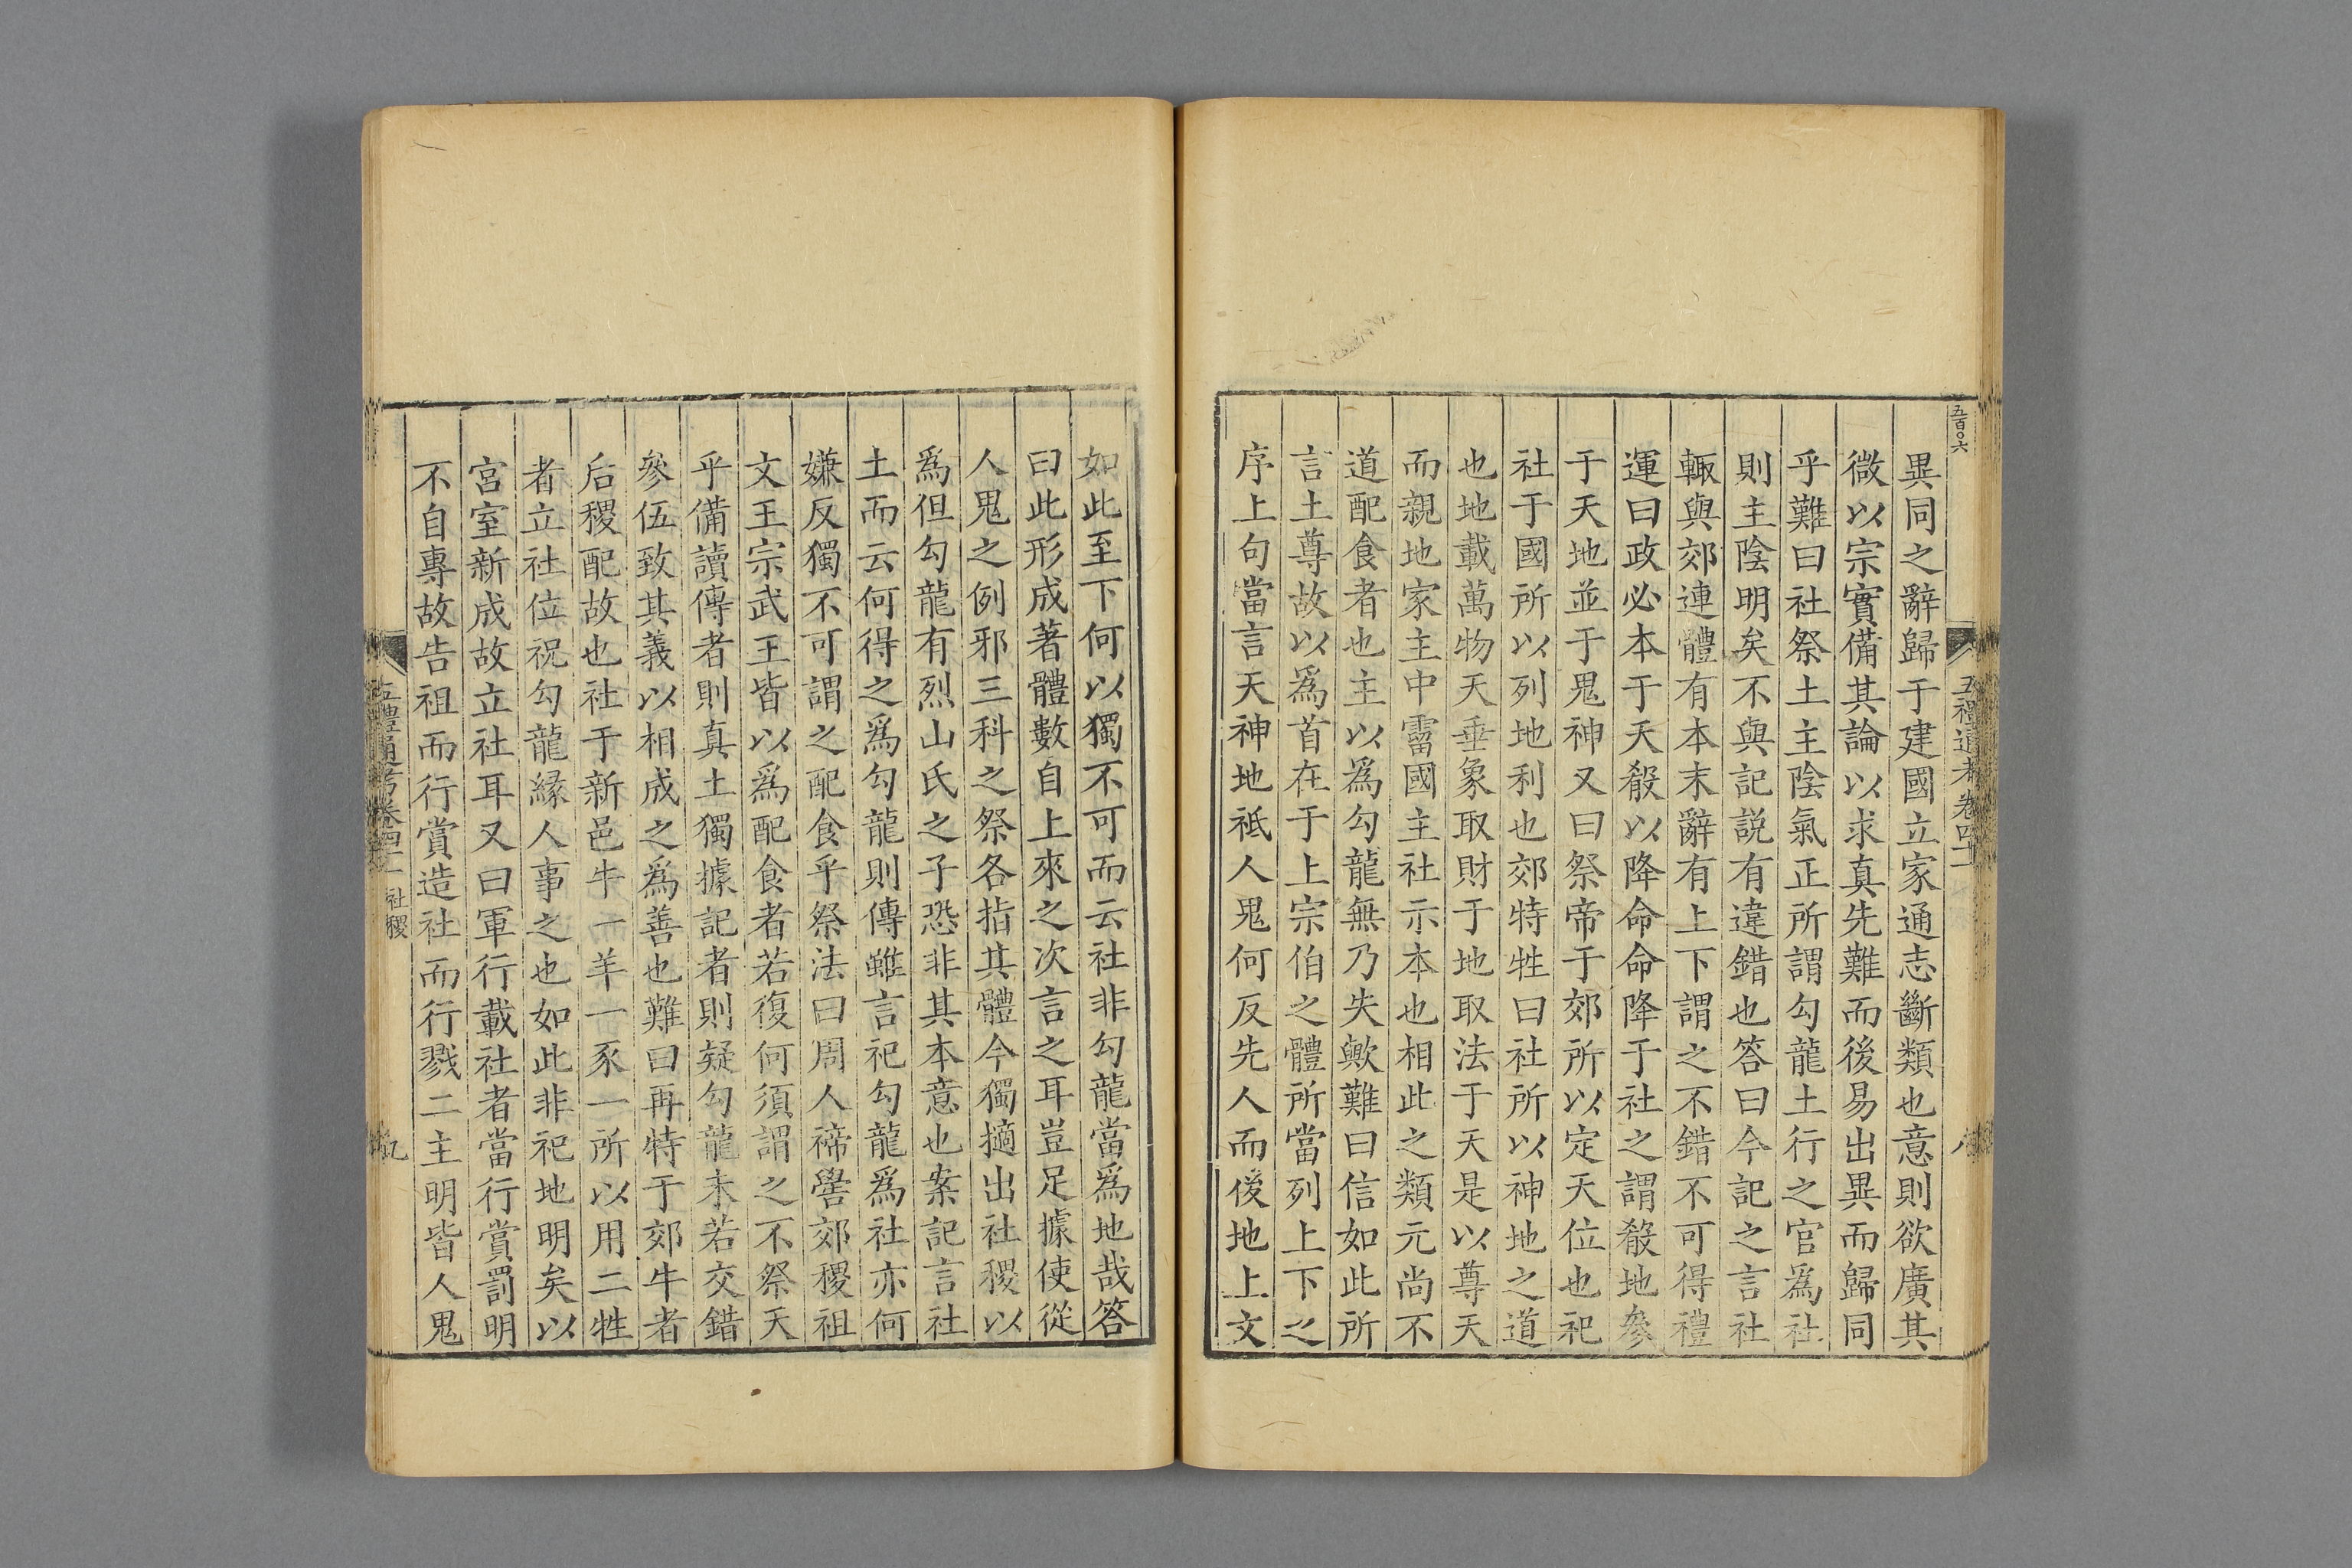 五百〇六
五禮通考卷四十二
八
異同之辭歸于建國立家通志斷類也意則欲廣其
微以宗實備其論以求真先難而後易出異而歸同
乎難曰社祭土主陰氣正所謂勾龍土行之官爲社
則主陰明矣不與記説有違錯也答曰今記之言社
輙與郊連體有本末辭有上下謂之不錯不可得禮
運曰政必本于天殽以降命命降于社之謂殽地參
于天地並于鬼神又曰祭帝于郊所以定天位也祀
社于國所以列地利也郊特牲曰社所以神地之道
也地載萬物天垂象取財于地取法于天是以尊天
而親地家主中霤國主社示本也相此之類元尚不
道配食者也主以爲勾龍無乃失歟難曰信如此所
言土尊故以爲首在于上宗伯之體所當列上下之
序上句當言天神地祗人鬼何反先人而後地上文
如此至下何以獨不可而云社非勾龍當爲地哉答
曰此形成著體數自上來之次言之耳豈足據使從
人鬼之例邪三科之祭各指其體今獨擿出社稷以
爲但勾龍有烈山氏之子恐非其本意也案記言社
土而云何得之爲勾龍則傳雖言祀勾龍爲社亦何
嫌反獨不可謂之配食乎祭法曰周人禘嚳郊稷祖
文王宗武王皆以爲配食者若復何須謂之不祭天
乎備讀傳者則真土獨據記者則疑勾龍未若交錯
參伍致其義以相成之爲善也難曰再特于郊牛者
后稷配故也社于新邑牛一羊一豕一所以用二牲
者立社位祝勾龍緣人事之也如此非祀地明矣以
宮室新成故立社耳又曰軍行載社者當行賞罰明
不自專故告祖而行賞造社而行戮二主明皆人鬼
五禮通考卷四十二 社稷
九